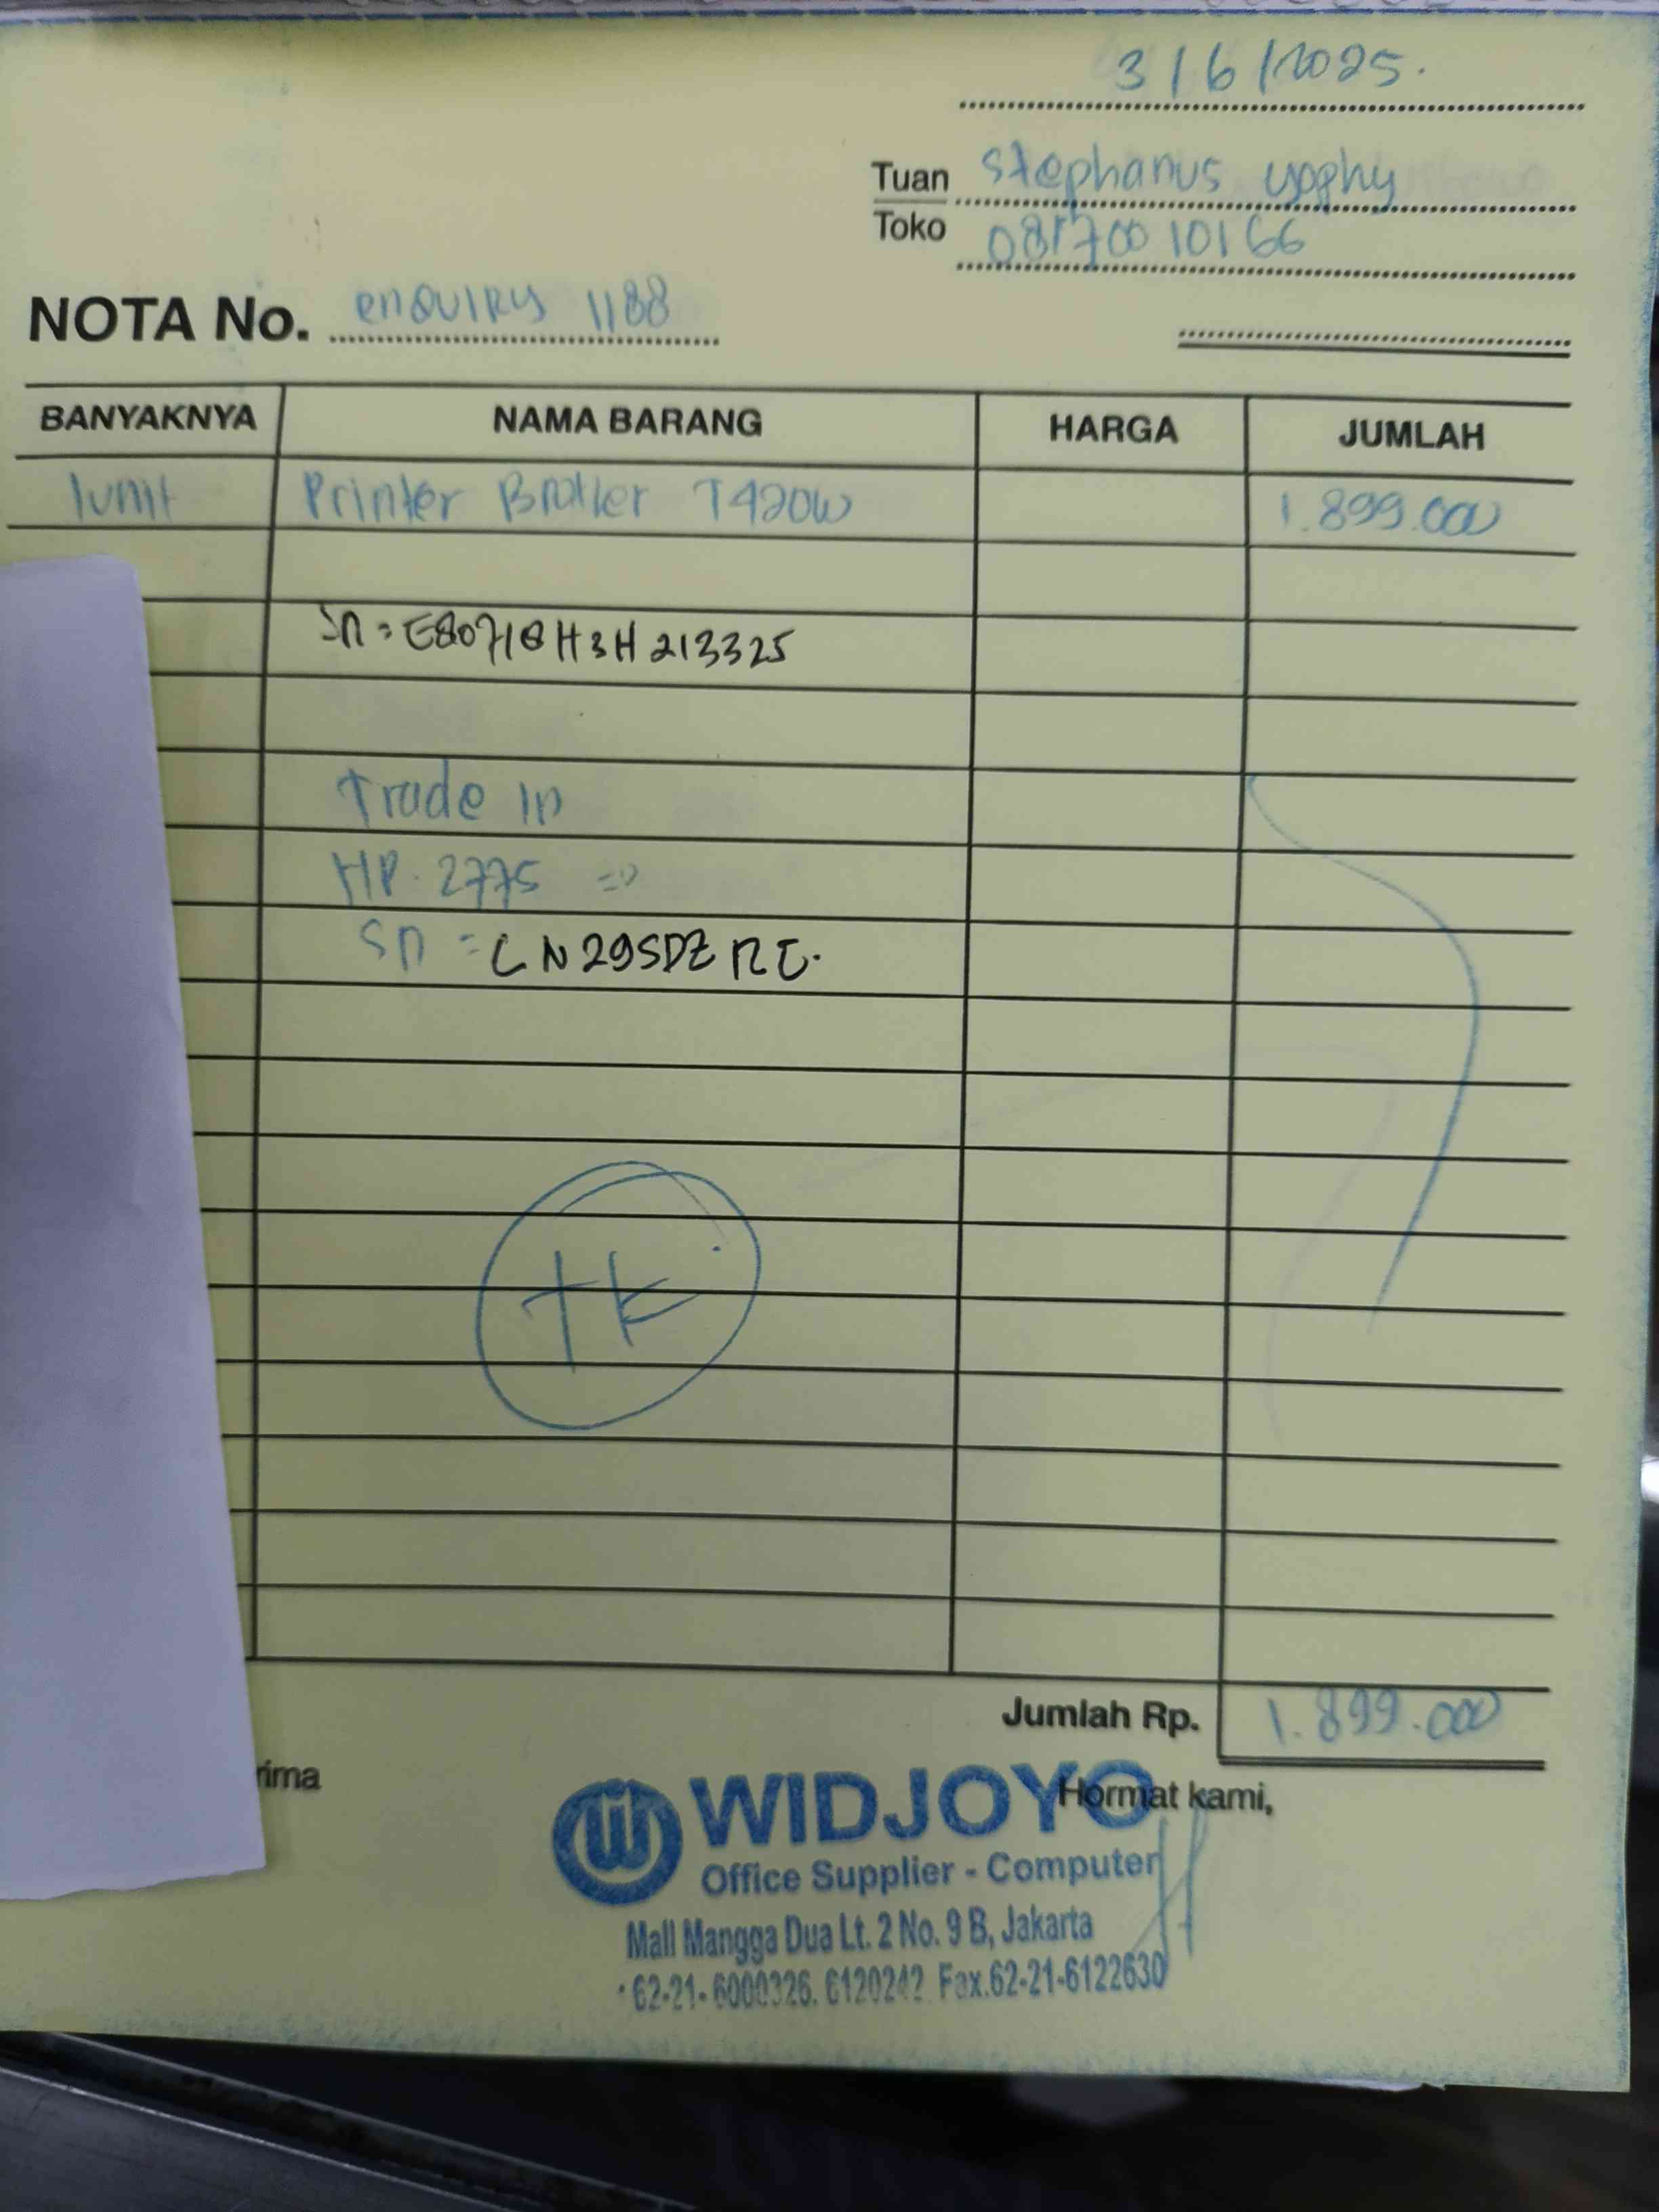 3/6/2025.
Tuan Stephanus yophy
Toko 08170010166
NOTA No. enquiry 1188
BANYAKNYA NAMA BARANG HARGA JUMLAH
1unit Printer Brother T420W 1.899.000
SN = E80718H3H213325
Trade In
HP. 2775 =>
SN = CN29SDZ
Jumlah Rp. 1.899.000
rima
Hormat kami,
WIDJOYO
Office Supplier - Computer
Mall Mangga Dua Lt. 2 No. 9 B, Jakarta
62-21- 6000326. 6120242 Fax.62-21-6122630